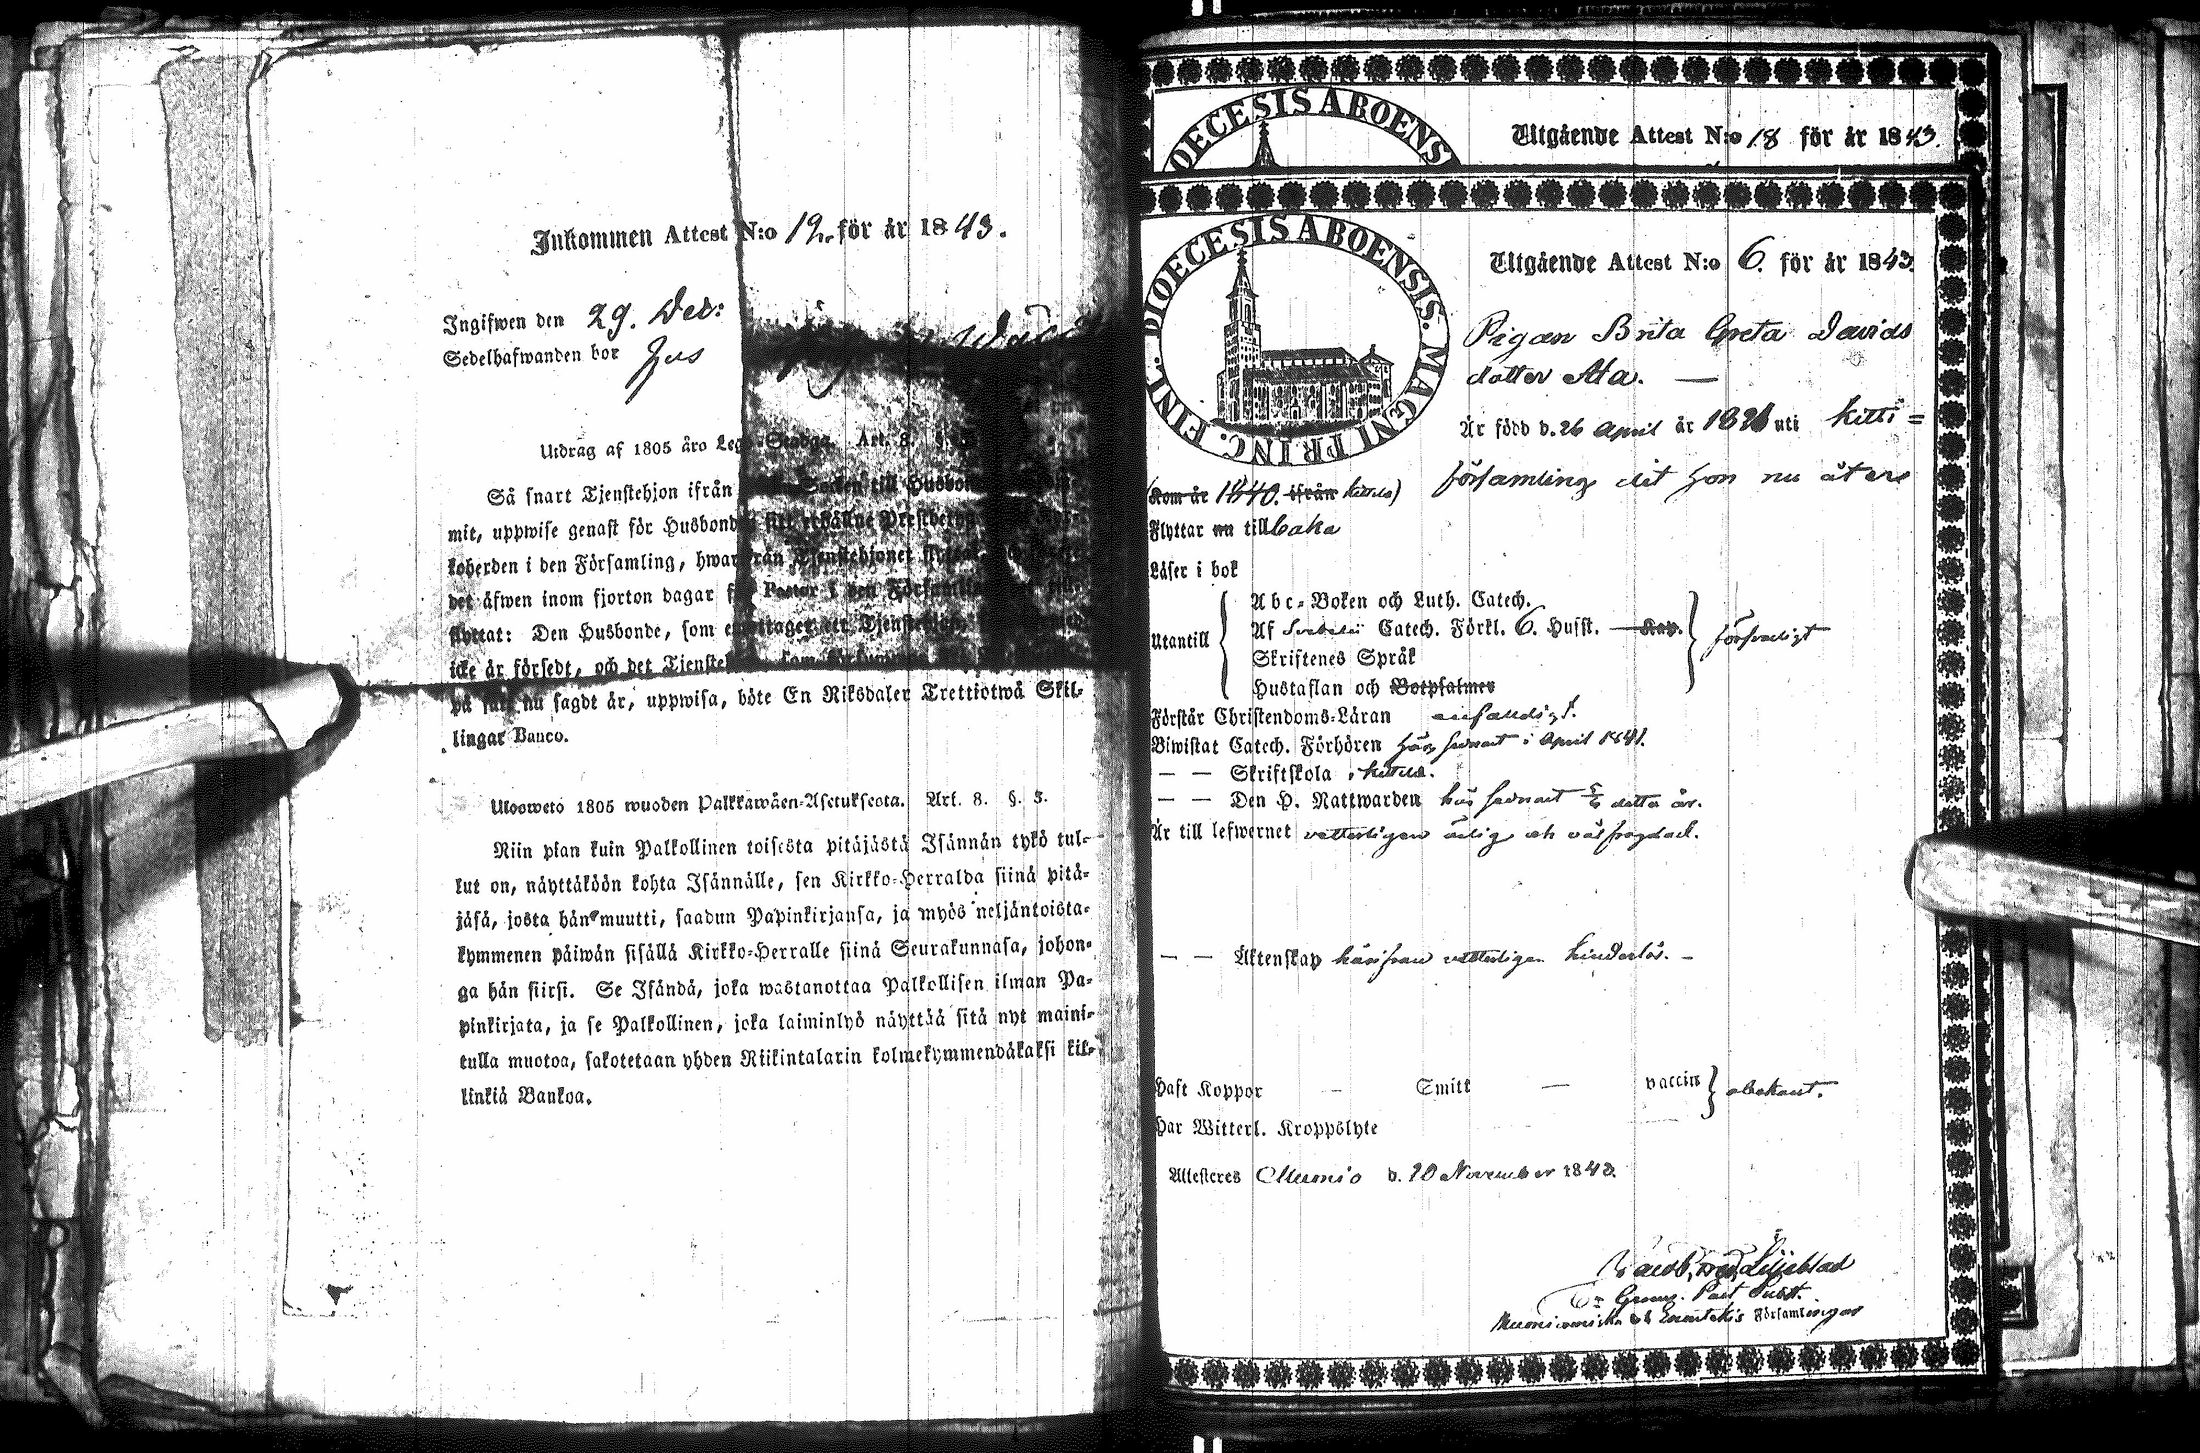 Inkommen Attest N:o 12. för år 1843.
Ingifwen den 29. Dec:
Sedelhafwanden bor hus
Utdrag af 1805 års Lego-Stadga. Art. 8. §.
Så snart Tjenstehjon ifrån Socken till Husbon
mit, uppwise genast för Husbond sitt erhållne Prestbetyg
koherden i den Församling, hwarifrån Tjenstehjonet flyttat
det äfwen inom fjorton dagar för Pastor i den Församling
flyttat: Den Husbonde, som emottager ett Tjenstehjon,
icke är försedt, och det Tjenste som
på sätt nu sagdt är, uppwisa, böte En Riksdaler Trettiotwå Skil-
lingar Banco.
Ulosweto 1805 wuoden Palkkawäen-Asetuksesta. Art. 8. §. 3.
Niin pian kuin Palkollinen toisesta pitäjästä Isännän tykö tul-
lut on, näyttäköön kohta Isännälle, sen Kirkko-Herralda siinä pitä-
jäsä, josta hän muutti, saadun Papinkirjansa, ja myös neljäntoista-
kymmenen päiwän sisällä Kirkko-Herralle siinä Seurakunnasa, johon-
ga hän siirsi. Se Isändä, joka wastanottaa Palkollisen ilman Pa-
pinkirjata, ja se Palkollinen, joka laiminlyö näyttää sitä nyt maini-
tulla muotoa, sakotetaan yhden Riikintalarin kolmekymmendäkaksi kil-
linkiä Bankoa.
DIOECESIS ABOENS
Utgående Attest N:o 18 för år 1843.
FINL. DIOECESIS ABOENSIS. MAGNI PRINC.
Utgående Attest N:o 6. för år 1843.
Pigan Brita Greta Davids
dotter Ala. —
Är född d. 26 April år 1821 uti Kitti=
församling dit hon nu åter
(Kom år 1840. ifrån Kittilä)
Flyttar nu tillbaka
Läser i bok
Utantill
Abc-Boken och Luth. Catech.
Af Svebelii Catech. Förkl. 6. Hufst. — Kap.
Skriftenes Språk
Hustaflan och Botpsalmer
försvarligt
Förstår Christendoms-Läran enfaldigt.
Biwistat Catech. Förhören här sednast i April 1841.
— — Skriftskola i Kittilä.
— — Den H. Nattwarden här sednast detta år.
Är till lefwernet vetterligen ärlig och välfrägdad.
— — Äktenskap härifrån vetterligen hinderlös. —
Haft Koppor — Smitt — vaccin } obekant.
Har Witterl. Kroppslyte
Attesteras Muonio d. 20 November 1843.
Jacob Fred. Liljeblad
Past Subst.
Muonioniska och Enontekis Församlingar